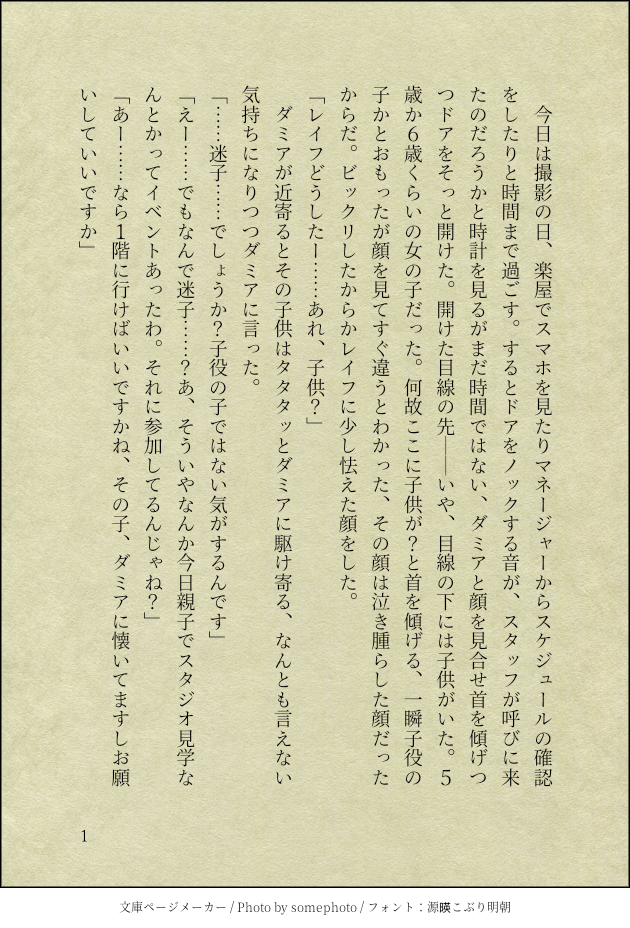 今日は撮影の日、楽屋でスマホを見たりマネージャーからスケジュールの確認
をしたりと時間まで過ごす。するとドアをノックする音が、スタッフが呼びに来
たのだろうかと時計を見るがまだ時間ではない、ダミアと顔を見合せ首を傾げつ
つドアをそっと開けた。開けた目線の先――いや、目線の下には子供がいた。５
歳か６歳くらいの女の子だった。何故ここに子供が？と首を傾げる、一瞬子役の
子かとおもったが顔を見てすぐ違うとわかった、その顔は泣き腫らした顔だった
からだ。ビックリしたからかレイフに少し怯えた顔をした。
「レイフどうしたー……あれ、子供？」
　ダミアが近寄るとその子供はタタタッとダミアに駆け寄る、なんとも言えない
気持ちになりつつダミアに言った。
「……迷子……でしょうか？子役の子ではない気がするんです」
「えー……でもなんで迷子……？あ、そういやなんか今日親子でスタジオ見学な
んとかってイベントあったわ。それに参加してるんじゃね？」
「あー……なら１階に行けばいいですかね、その子、ダミアに懐いてますしお願
いしていいですか」
1
文庫ページメーカー / Photo by somephoto / フォント：源暎こぶり明朝